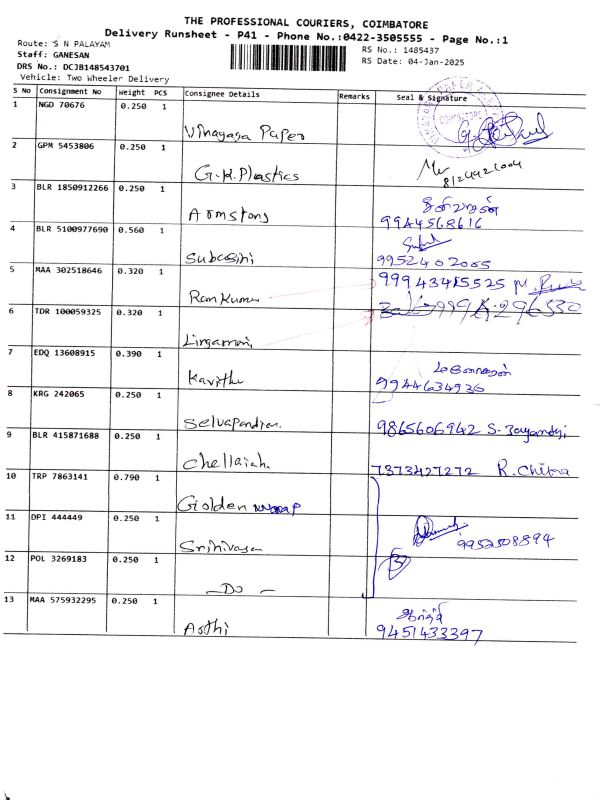 THE PROFESSIONAL COURIERS, COIMBATORE
Delivery Runsheet - P41 - Phone No.:0422-3505555 - Page No.:1
Route: S N PALAYAM
RS No.: 1485437
Staff: GANESAN
RS Date: 04-Jan-2025
DRS No.: DCJB148543701
Vehicle: Two Wheeler Delivery
S No Consignment No Weight PCS Consignee Details Remarks Seal & Signature
1 NGD 70676 0.250 1
Vinayaga Paper
2 GPM 5453806 0.250 1
G.K.Plastics
3 BLR 1850912266 0.250 1
Armstong
9944568616
4 BLR 5100977690 0.560 1
Subasini
9952402055
5 MAA 302518646 0.320 1
Ramkumar
6 TDR 100059325 0.320 1
Lingamani
7 EDQ 13608915 0.390 1
Kavitha
9944634936
8 KRG 242065 0.250 1
Selvapandian
9865606942
9 BLR 415871688 0.250 1
Chellaiah
7373427272 R. Chitra
10 TRP 7863141 0.790 1
Golden
11 DPI 444449 0.250 1
Srinivasan
9952508894
12 POL 3269183 0.250 1
— Do —
13 MAA 575932295 0.250 1
Arthi
ஆர்த்தி
9451433397